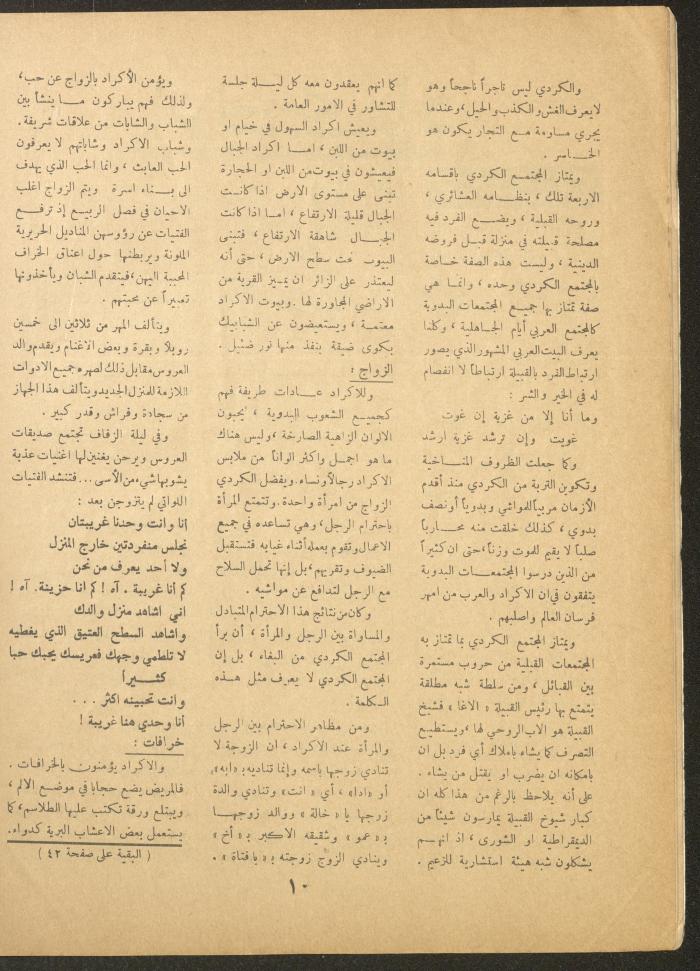 والكردي ليس تاجراً ناجحاً وهو
لا يعرف الغش والكذب والحيل، وعندما
يجري مساومة مع التجار يكون هو
الخاسر .
ويمتاز المجتمع الكردي باقسامه
الاربعة تلك ، بنظامه العشائري ،
وروحه القبلية ، ويضع الفرد فيه
مصلحة قبيلته في منزلة قبل فروضه
الدينية ، وليست هذه الصفة خاصة
بالمجتمع الكردي وحده ، وانما هي
صفة تمتاز بها جميع المجتمعات البدوية
كالمجتمع العربي أيام الجاهلية ، وكلنا
يعرف البيت العربي المشهور الذي يصور
ارتباط الفرد بالقبيلة ارتباطاً لا انفصام
له في الخير والشر :
وما أنا إلا من غزية إن غوت
غويت وإن ترشد غزية ارشد
وكما جعلت الظروف المناخية
وتكوين التربة من الكردي منذ أقدم
الأزمان مربياً للمواشي وبدوياً أو نصف
بدوي ، كذلك خلقت منه محارباً
صلباً لا يقيم للموت وزناً، حتى ان كثيراً
من الذين درسوا المجتمعات البدوية
يتفقون في ان الاكراد والعرب من امهر
فرسان العالم واصلبهم .
ويمتاز المجتمع الكردي بما تمتاز به
المجتمعات القبلية من حروب مستمرة
بين القبائل ، ومن سلطة شبه مطلقة
يتمتع بها رئيس القبيلة « الاغا » فشيخ
القبيلة هو الاب الروحي لها ، ويستطيع
التصرف كما يشاء باملاك أي فرد بل ان
بامكانه ان يضرب او يقتل من يشاء .
على أنه يلاحظ بالرغم من هذا كله ان
كبار شيوخ القبيلة يمارسون شيئاً من
الديمقراطية أو الشورى ، اذ انهم
يشكلون شبه هيئة استشارية للزعيم .
كما انهم يعقدون معه كل ليلة جلسة
للتشاور في الامور العامة .
ويعيش اكراد السهول في خيام او
بيوت من اللبن ، اما اكراد الجبال
فيعيشون في بيوت من اللبن او الحجارة
تبنى على مستوى الارض اذا كانت
الجبال قليلة الارتفاع ، اما اذا كانت
الجبال شاهقة الارتفاع ، فتبنى
البيوت تحت سطح الارض ، حتى أنه
ليعتذر على الزائر ان يميز القرية من
الاراضي المجاورة لها . وبيوت الاكراد
معتمة ، ويستعيضون عن الشبابيك
بكوى ضيقة ينفذ منها نور ضئيل .
الزواج :
وللاكراد عادات طريفة فهم
كجميع الشعوب البدوية ، يحبون
الالوان الزاهية الصارخة ، وليس هناك
ما هو اجمل واكثر الواناً من ملابس
الاكراد رجالاً ونساء. ويفضل الكردي
الزواج من امرأة واحدة. وتتمتع المرأة
باحترام الرجل، وهي تساعده في جميع
الاعمال وتقوم بعمله أثناء غيابه فتستقبل
الضيوف وتقريهم، بل إنها تحمل السلاح
مع الرجل لتدافع عن مواشيه .
وكان من نتائج هذا الاحترام المتبادل
والمساواة بين الرجل والمرأة ، أن برأ
المجتمع الكردي من البغاء ، بل إن
المجتمع الكردي لا يعرف مثل هذه
الكلمة .
ومن مظاهر الاحترام بين الرجل
والمرأة عند الاكراد ، ان الزوجة لا
تنادي زوجها باسمه وإنما تناديه بـ «ابه»
أو «ادا» ، أي « انت » وتنادي والدة
زوجها يا « خالة » ووالد زوجها
بـ « عمو » وشقيقه الاكبر بـ « أخ »
وينادي الزوج زوجته بـ « يا فتاة » .
ويؤمن الأكراد بالزواج عن حب،
ولذلك فهم يباركون ما ينشأ بين
الشباب والشابات من علاقات شريفة .
وشباب الاكراد وشاباتهم لا يعرفون
الحب العابث ، وانما الحب الذي يهدف
الى بناء اسرة ويتم الزواج اغلب
الاحيان في فصل الربيع إذ ترفع
الفتيات عن رؤوسهن المناديل الحريرية
الملونة ويربطنها حول اعناق الخراف
المحببة اليهن، فيتقدم الشبان ويأخذونها
تعبيراً عن محبتهم .
ويتألف المهر من ثلاثين الى خمسين
روبلا وبقرة وبعض الاغنام ويقدم والد
العروس مقابل ذلك لصهره جميع الادوات
اللازمة للمنزل الجديد ويتألف هذا الجهاز
من سجادة وفراش وقدر كبير .
وفي ليلة الزفاف تجتمع صديقات
العروس ويرحن يغنين لها اغنيات عذبة
يشوبها شيء من الأسى ... فتنشد الفتيات
اللواتي لم يتزوجن بعد :
انا وانت وحدنا غريبتان
نجلس منفردتين خارج المنزل
ولا أحد يعرف من نحن
كم أنا غريبة . آه ! كم انا حزينة. آه !
اني اشاهد منزل والدك
واشاهد السطح العتيق الذي يغطيه
لا تلطمي وجهك فعريسك يحبك حبا
كثيراً
وانت تحبينه اكثر ...
أنا وحدي هنا غريبة !
خرافات :
والاكراد يؤمنون بالخرافات .
فالمريض يضع حجابا في موضع الالم ،
ويبتلع ورقة تكتب عليها الطلاسم، كما
يستعمل بعض الاعشاب البرية كدواء.
( البقية على صفحة ٤٢ )
١٠